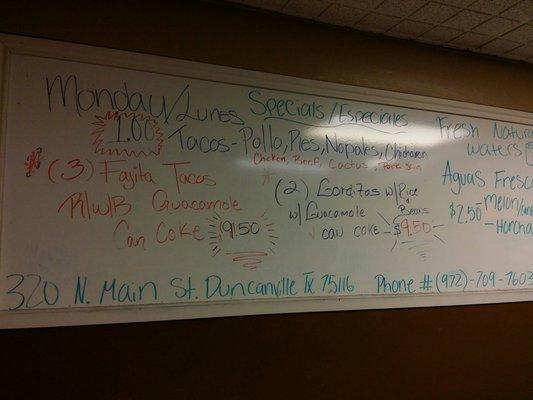 Monday/Lunes Specials/Especiales
1.00 Tacos-Pollo, Pies, Nopales, Chicharon
Chicken, Beef, Cactus, Pork Skin
(3) Fajita Tacos
R/w/B Guacamole
Can Coke 9.50
(2) Gorditas w/Rice
w/ Guacamole Beans
can coke - $9.50
Fresh Natural
waters
Aguas Fresc
$2.50 - Melon/
- Horcha
320 N. Main St. Duncanville Tx 75116 Phone # (972)-709-7603